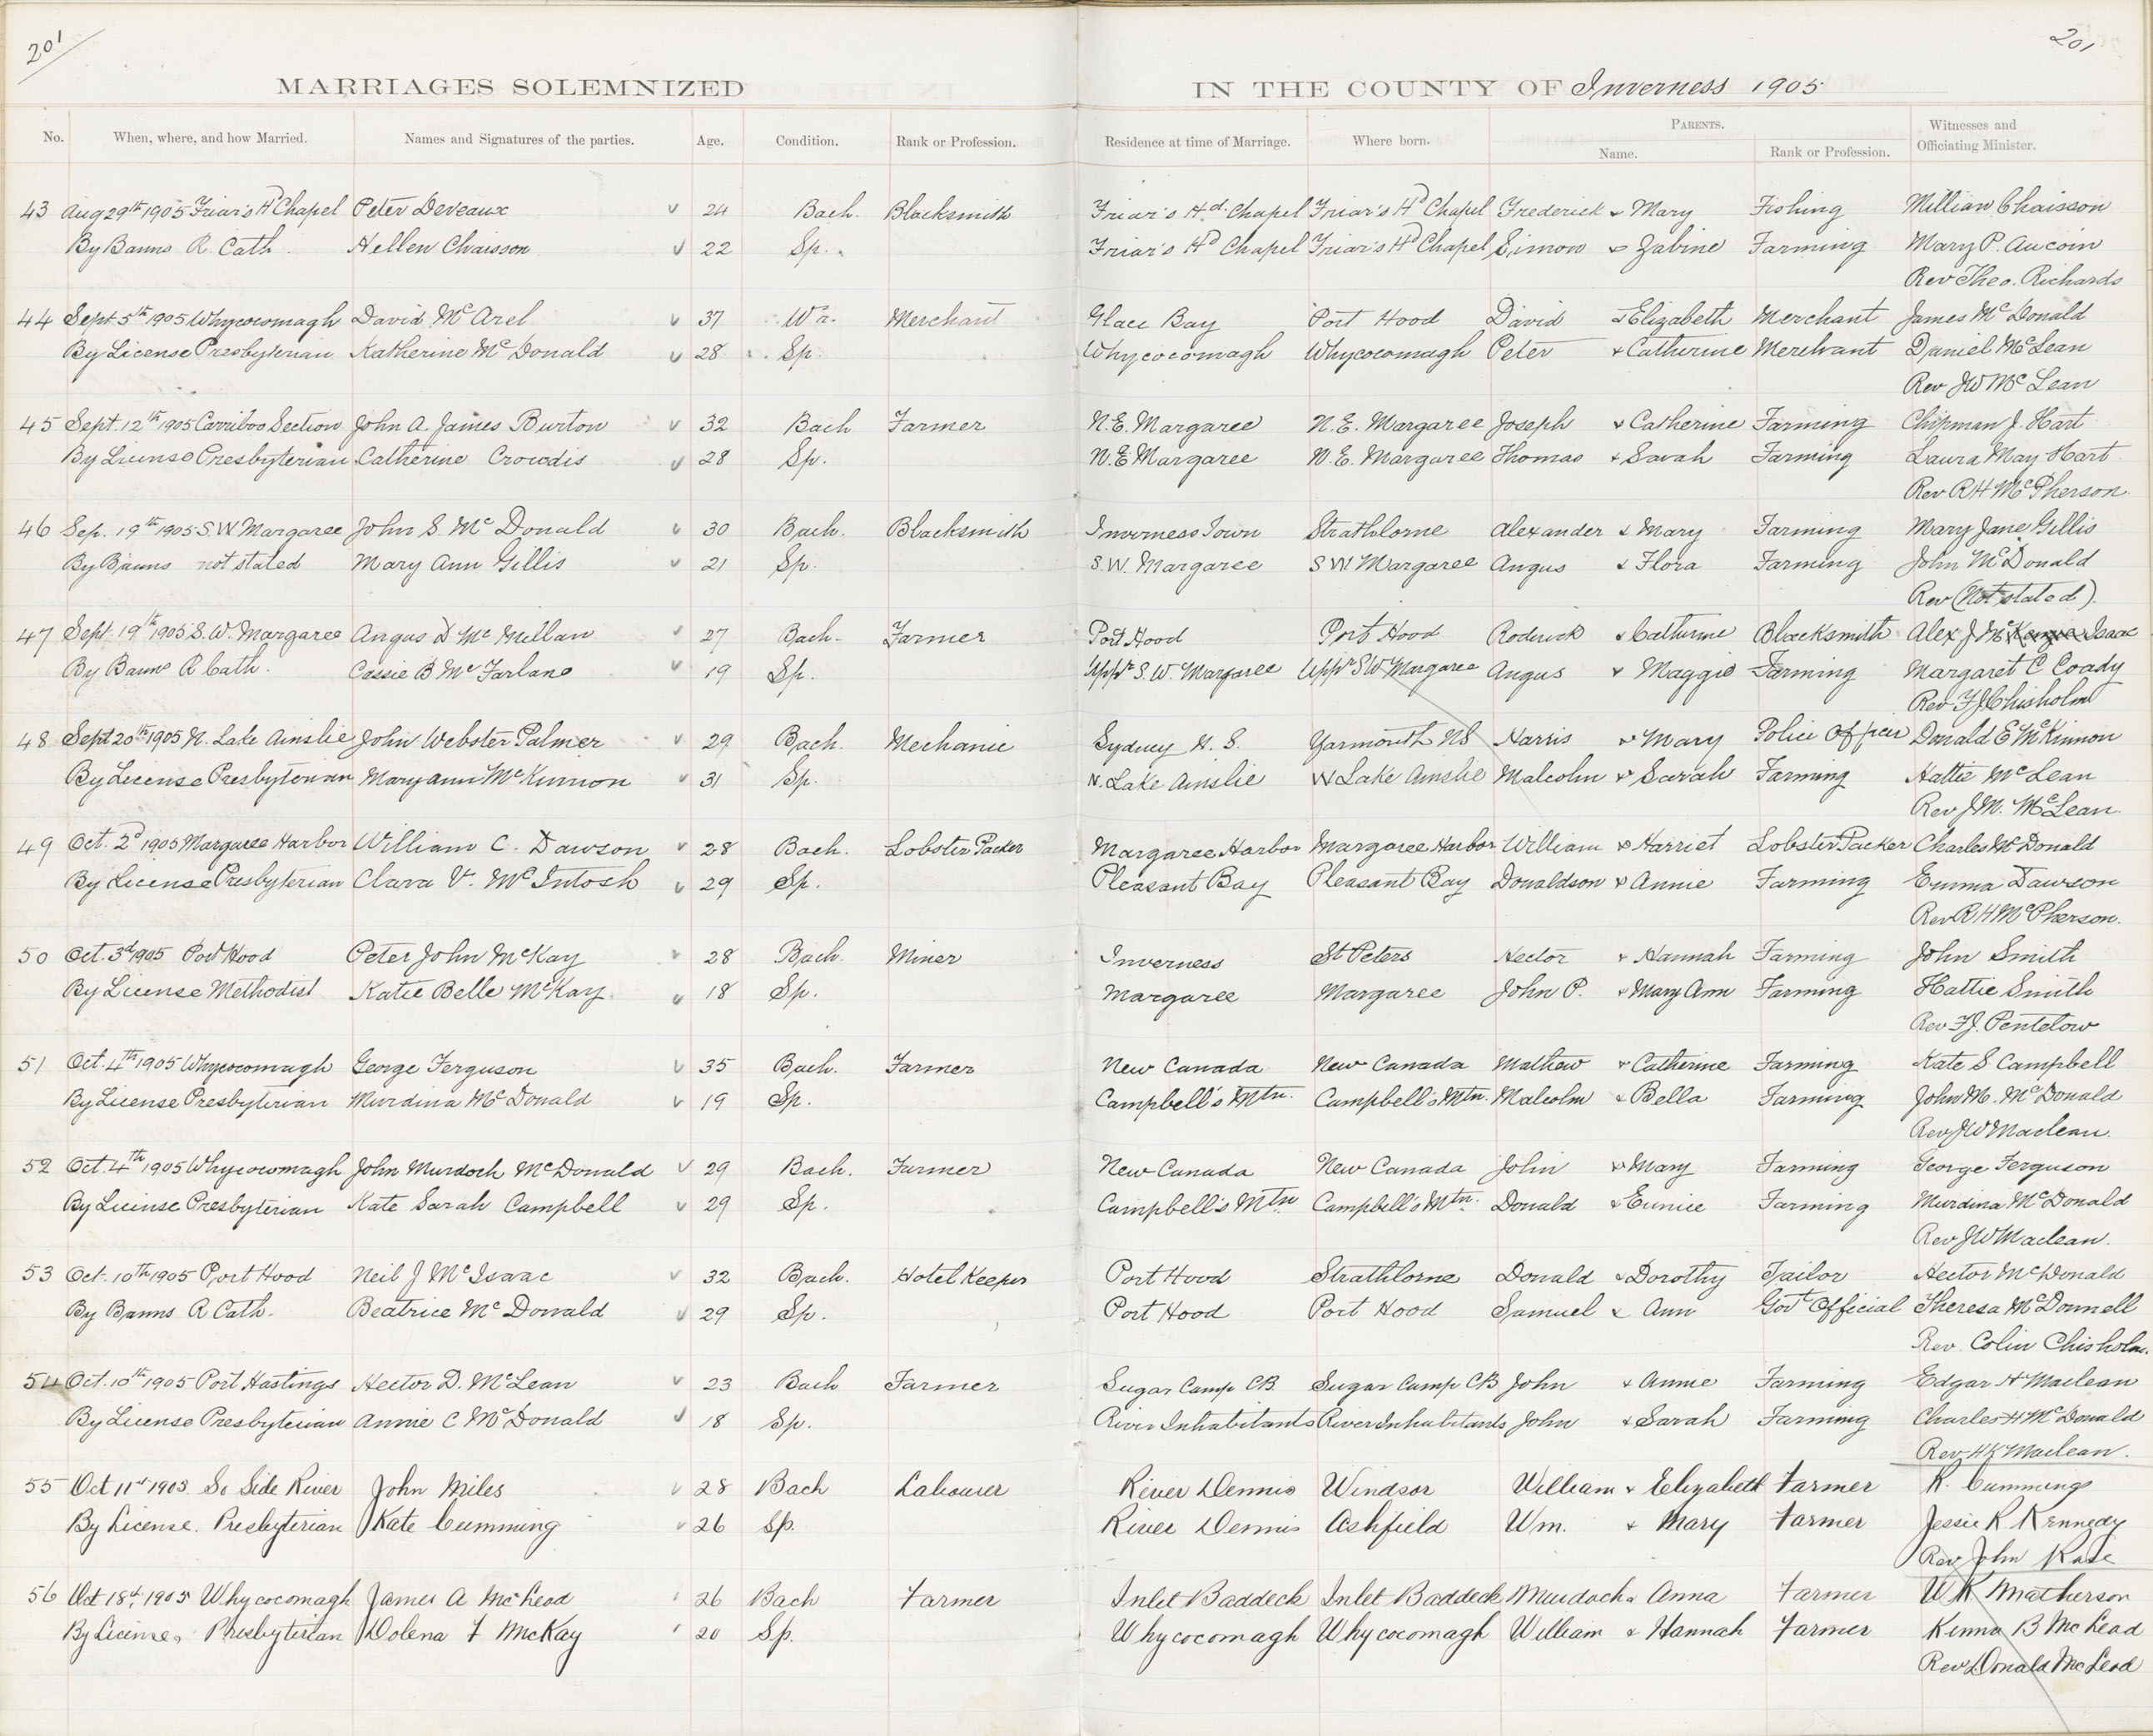 201
201
MARRIAGES SOLEMNIZED IN THE COUNTY OF Inverness 1905
No. When, where, and how Married. Names and Signatures of the parties. Age. Condition. Rank or Profession. Residence at time of Marriage. Where born. PARENTS. Name. Rank or Profession. Witnesses and Officiating Minister.
43 Aug 29th 1905 Friar's Hd Chapel Peter Deveaux 24 Bach. Blacksmith Friar's Hd. Chapel Friar's Hd Chapel Frederick & Mary Fishing Millian Chaisson
By Banns R. Cath. Hellen Chaisson 22 Sp. Friar's Hd Chapel Friar's Hd Chapel Simon & Zabine Farming Mary P. Aucoin
Rev Theo. Richards
44 Sept. 5th 1905 Whycocomagh David McArel 37 Wr. Merchant Glace Bay Port Hood David & Elizabeth Merchant James McDonald
By License Presbyterian Katherine McDonald 28 Sp. Whycocomagh Whycocomagh Peter & Catherine Merchant Daniel McLean
Rev JW McLean
45 Sept. 12th 1905 Carriboo Section John A. James Burton 32 Bach Farmer N.E. Margaree N.E. Margaree Joseph & Catherine Farming Chipman J. Hart
By License Presbyterian Catherine Crowdis 28 Sp. N.E Margaree N.E. Margaree Thomas & Sarah Farming Laura May Hart
Rev RH McPherson.
46 Sep. 19th 1905 S.W Margaree John S. McDonald 30 Bach. Blacksmith Inverness Town Strathlorne Alexander & Mary Farming Mary Jane Gillis
By Banns not stated Mary Ann Gillis 21 Sp. S.W. Margaree S W. Margaree Angus & Flora Farming John McDonald
Rev (Not stated).
47 Sept. 19th 1905 S. W. Margaree Angus D McMillan 27 Bach- Farmer Port Hood Port Hood Roderick & Catherine Blacksmith Alex J McKenzie Isaac
By Banns R Cath. Cassie B McFarlane 19 Sp. Uppr S. W. Margaree Uppr SW Margaree Angus & Maggie Farming Margaret C Coady
Rev FJ Chisholm
48 Sept 20th 1905 N. Lake Ainslie John Webster Palmer 29 Bach. Mechanic Sydney N. S. Yarmouth NS Harris & Mary Police Officer Donald E McKinnon
By License Presbyterian Mary Ann McKinnon 31 Sp. N. Lake Ainslie W Lake Ainslie Malcolm & Sarah Farming Hattie McLean
Rev J.M. McLean.
49 Oct. 2d 1905 Margaree Harbor William C. Dawson 28 Bach. Lobster Packer Margaree Harbor Margaree Harbor William & Harriet Lobster Packer Charles McDonald
By License Presbyterian Clara V. McIntosh 29 Sp. Pleasant Bay Pleasant Bay Donaldson & Annie Farming Emma Dawson
Rev R H McPherson.
50 Oct. 3d 1905 Port Hood Peter John McKay 28 Bach. Miner Inverness St Peters Hector & Hannah Farming John Smith
By License Methodist Katie Belle McKay. 18 Sp. Margaree Margaree John P. & Mary Ann Farming Hattie Smith
Rev FJ. Pentelow
51 Oct. 4th 1905 Whycocomagh George Ferguson 35 Bach. Farmer New Canada New Canada Mathew & Catherine Farming Kate S Campbell
By License Presbyterian Murdina McDonald 19 Sp. Campbell's Mtn. Campbell's Mtn. Malcolm & Bella Farming John M. McDonald
Rev JW Maclean.
52 Oct. 4th 1905 Whycocomagh John Murdoch McDonald 29 Bach. Farmer New Canada New Canada John & Mary Farming George Ferguson
By License Presbyterian Kate Sarah Campbell 29 Sp. Campbell's Mtn Campbell's Mtn. Donald & Eunice Farming Murdina McDonald
Rev JW Maclean.
53 Oct. 10th 1905 Port Hood Neil J McIsaac 32 Bach. Hotel Keeper Port Hood Strathlorne Donald & Dorothy Tailor Hector McDonald
By Banns R Cath. Beatrice McDonald 29 Sp. Port Hood Port Hood Samuel & Ann Govt Official Theresa McDonnell
Rev. Colin Chisholm.
54 Oct. 10th 1905 Port Hastings Hector D. McLean 23 Bach Farmer Sugar Camp CB. Sugar Camp CB John & Annie Farming Edgar H Maclean
By License Presbyterian Annie C McDonald 18 Sp. River Inhabitants River Inhabitants John & Sarah Farming Charles H McDonald
Rev HK Maclean.
55 Oct 11th 1905. So Side River John Miles 28 Bach Labourer River Dennis Windsor William & Elizabeth Farmer R. Cummings
By License. Presbyterian Kate Cumming 26 Sp. River Dennis Ashfield Wm. & Mary Farmer Jessie R Kennedy
Rev John Rose
56 Oct 18th 1905 Whycocomagh James A McLeod 26 Bach Farmer Inlet Baddeck Inlet Baddeck Murdoch & Anna Farmer W K Matherson
By License, Presbyterian Dolena F McKay 20 Sp. Whycocomagh Whycocomagh William & Hannah Farmer Kenna B McLeod
Rev Donald McLeod